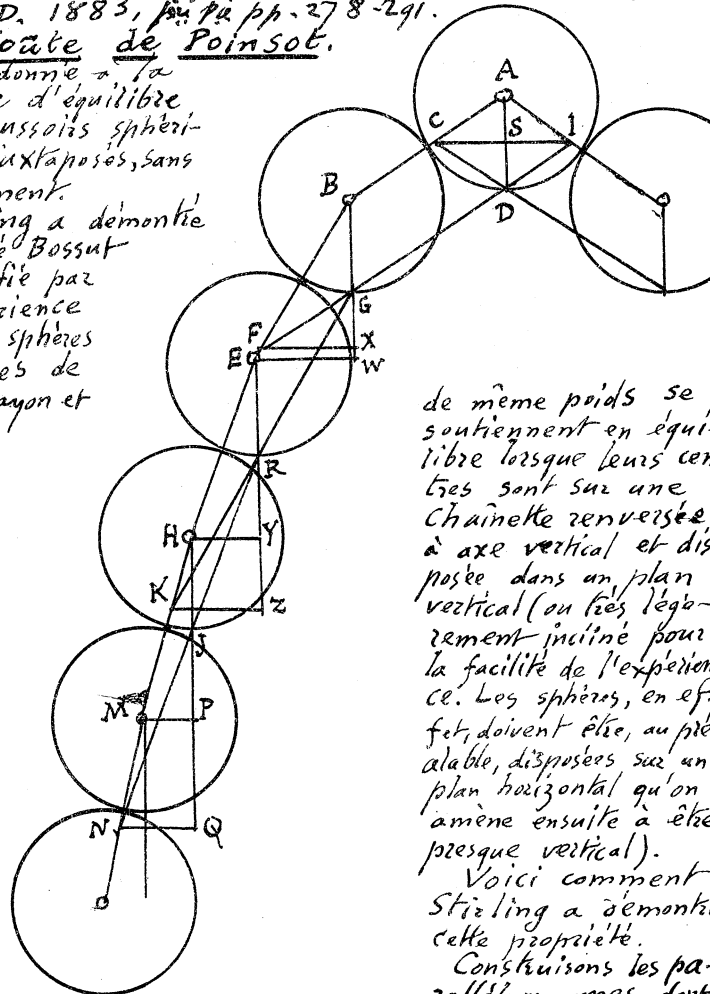 D. 1883, pp. 278-291.
oûte de Poinsot.
donné à la
e d'équilibre
ussoirs sphéri-
uxtaposés, sans
ment.
ng a démontré
é Bossut
fié par
rience
sphères
es de
ayon et
A
C
S
1
B
D
G
F
X
E
W
R
H
Y
K
Z
J
M
P
N
Q
de même poids se
soutiennent en équi-
libre lorsque leurs cen
tres sont sur une
Chaînette renversée
à axe vertical et dis
posée dans un plan
vertical (ou très légè-
rement incliné pour
la facilité de l'expérien
ce. Les sphères, en ef-
fet, doivent être, au pré
alable, disposées sur un
plan horizontal qu'on
amène ensuite à être
presque vertical).
Voici comment
Stirling a démontr
cette propriété.
Construisons les pa-